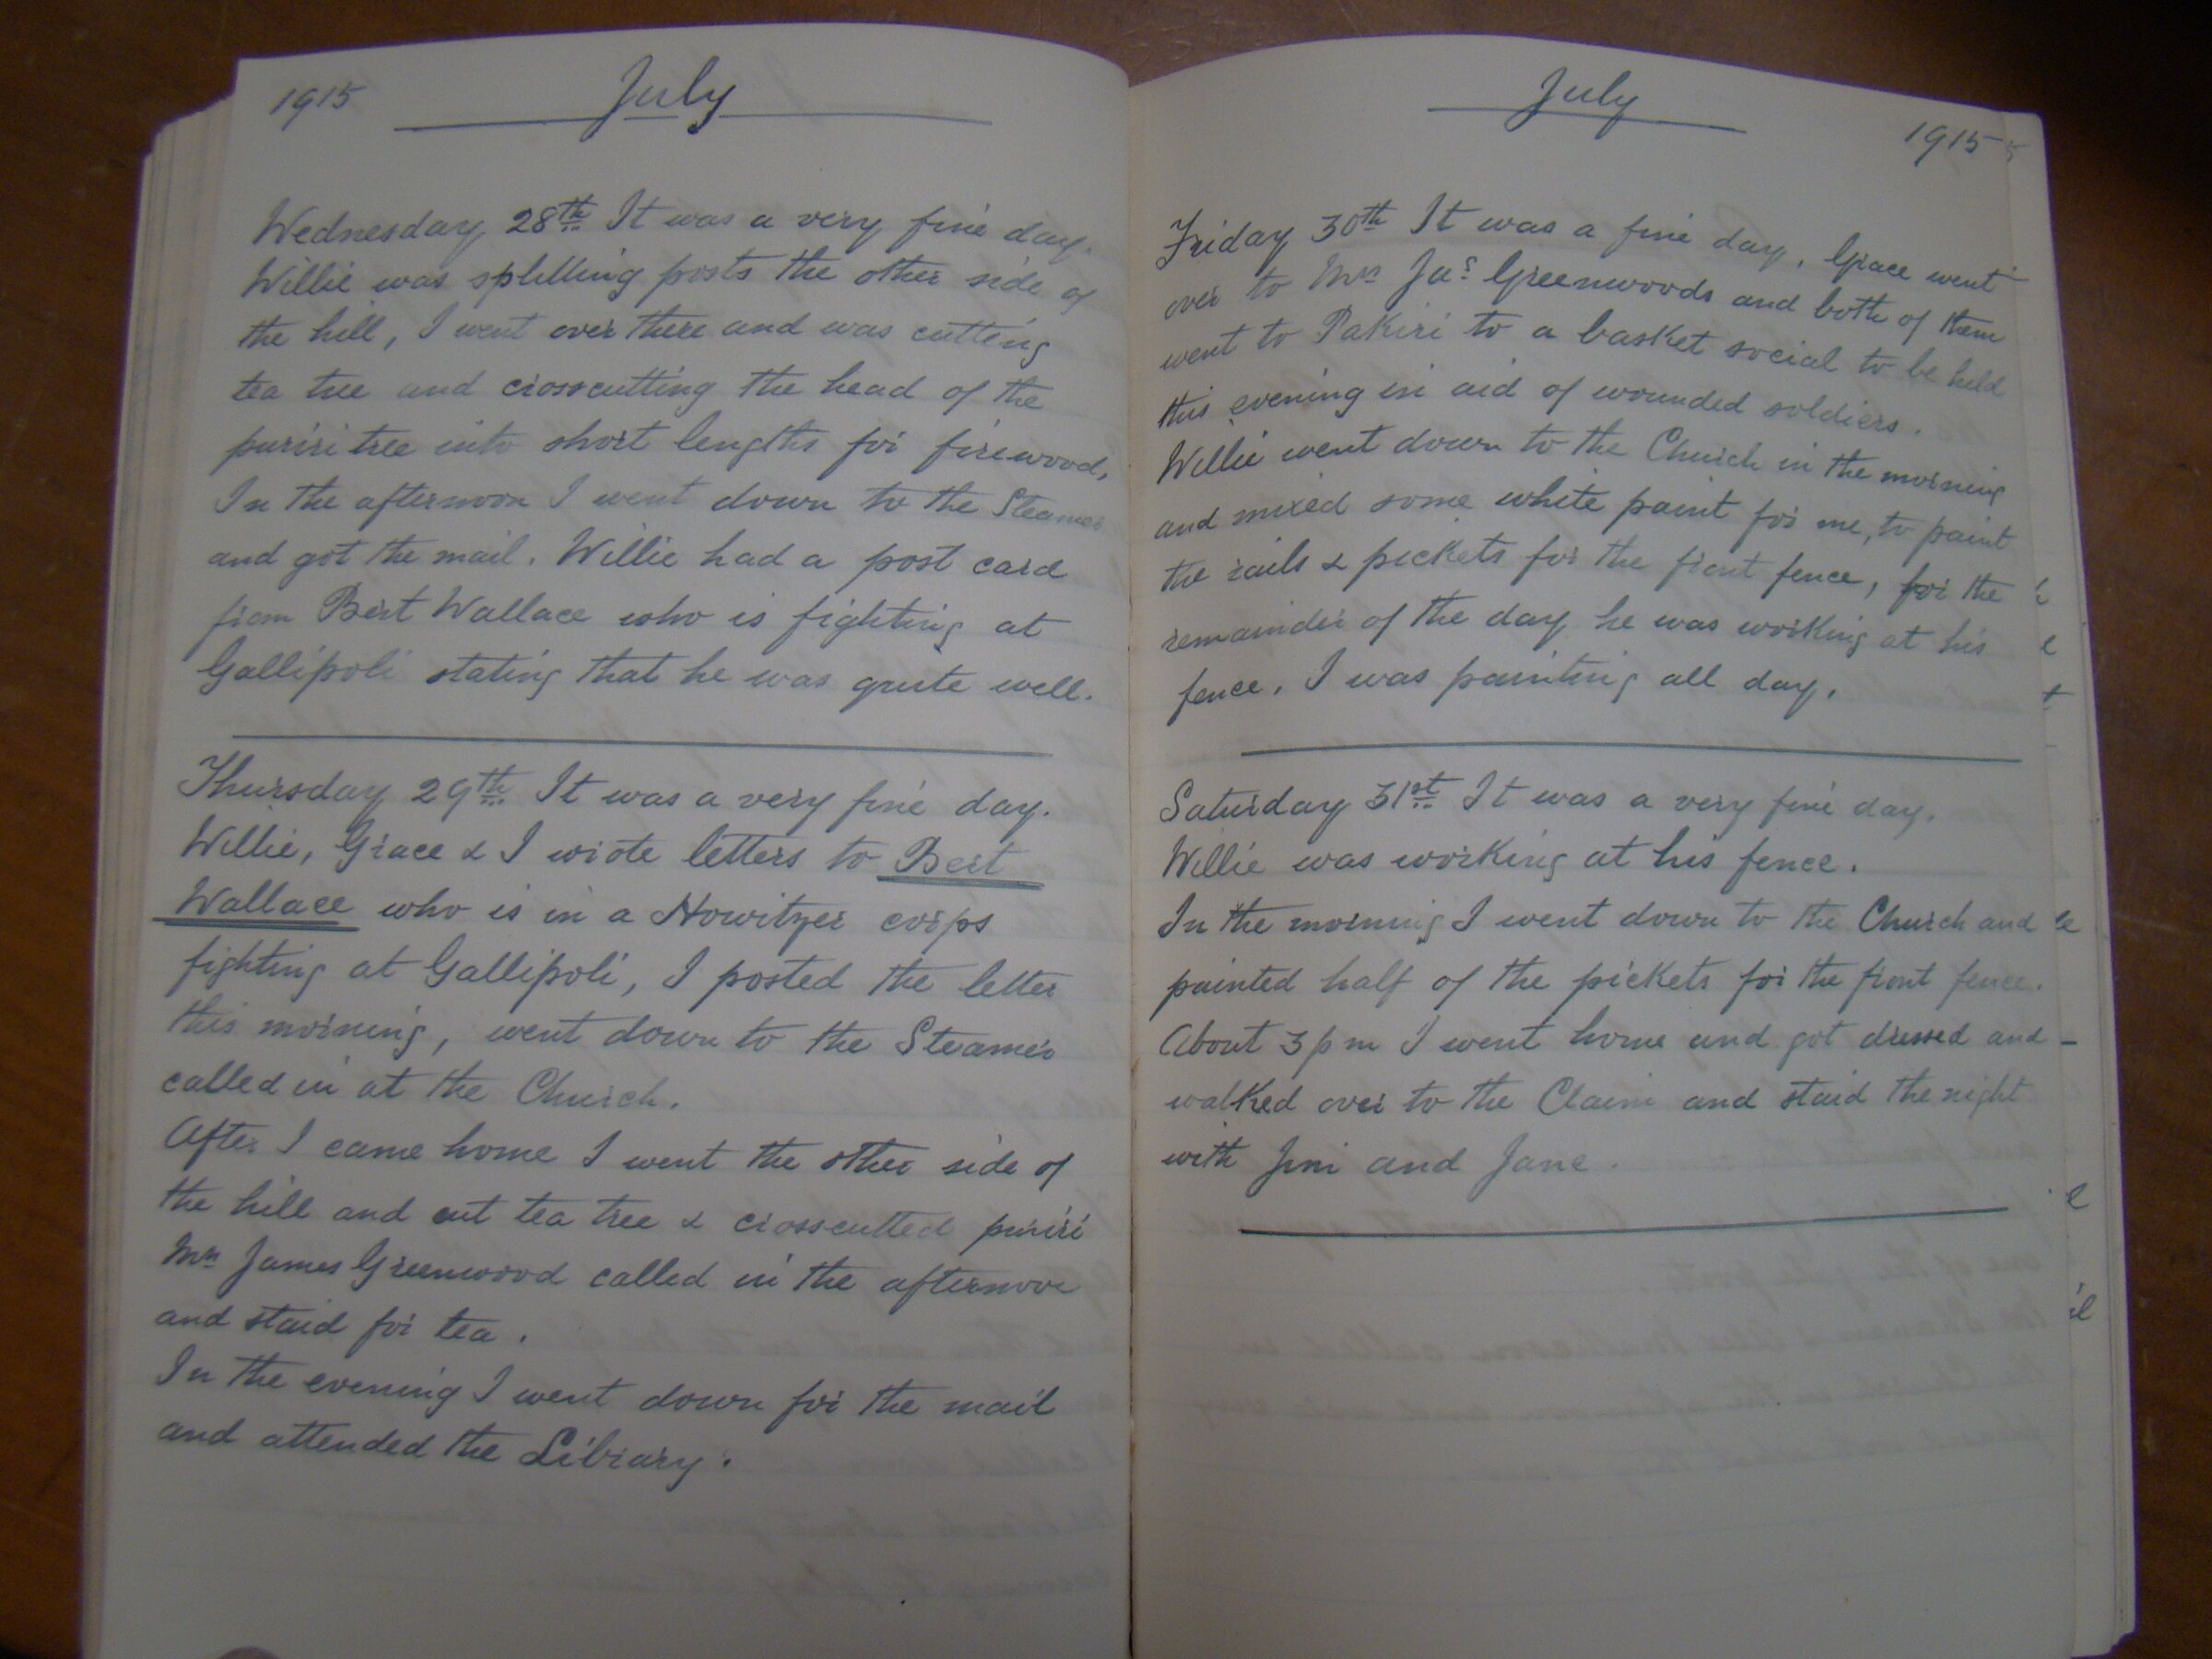 1915
July
Wednesday 28th It was a very fine day.
Willie was splitting posts the other side of
the hill, I went over there and was cutting
tea tree and crosscutting the head of the
puriri tree into short lengths for firewood,
In the afternoon I went down to the Steamer
and got the mail. Willie had a post card
from Bert Wallace who is fighting at
Gallipoli stating that he was quite well.
Thursday 29th It was a very fine day.
Willie, Grace & I wrote letters to Bert
Wallace who is in a Howitzer corps
fighting at Gallipoli, I posted the letter
this morning, went down to the Steamer
called in at the Church.
After I came home I went the other side of
the hill and cut tea tree & crosscutted puriri
Mrs James Greenwood called in the afternoon
and staid for tea.
In the evening I went down for the mail
and attended the Library.
July
1915
Friday 30th It was a fine day, Grace went
over to Mrs Jas Greenwoods and both of them
went to Pakiri to a basket social to be held
this evening in aid of wounded soldiers.
Willie went down to the Church in the morning
and mixed some white paint for me, to paint
the rails & pickets for the front fence, for the
remainder of the day he was working at his
fence. I was painting all day.
Saturday 31st It was a very fine day.
Willie was working at his fence.
In the morning I went down to the Church and
painted half of the pickets for the front fence.
About 3 pm I went home and got dressed and
walked over to the Claim and staid the night
with Jim and Jane.